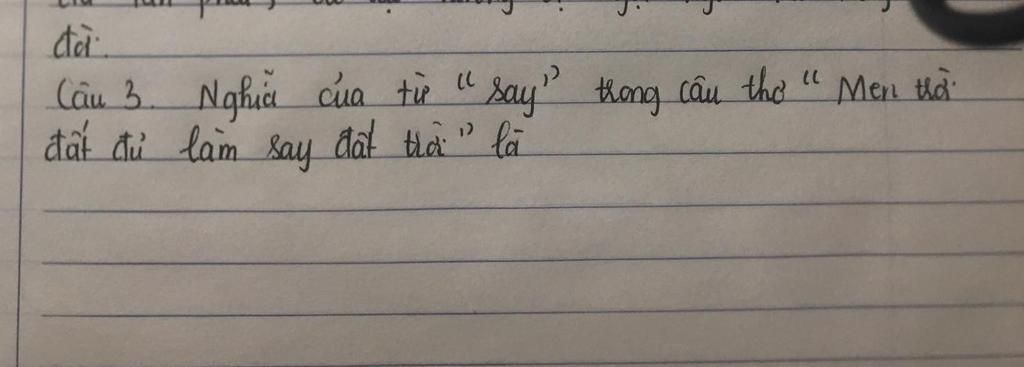 đời.
Câu 3. Nghĩa của từ "say" trong câu thơ "Men trời
đất đủ làm say đất trời" là